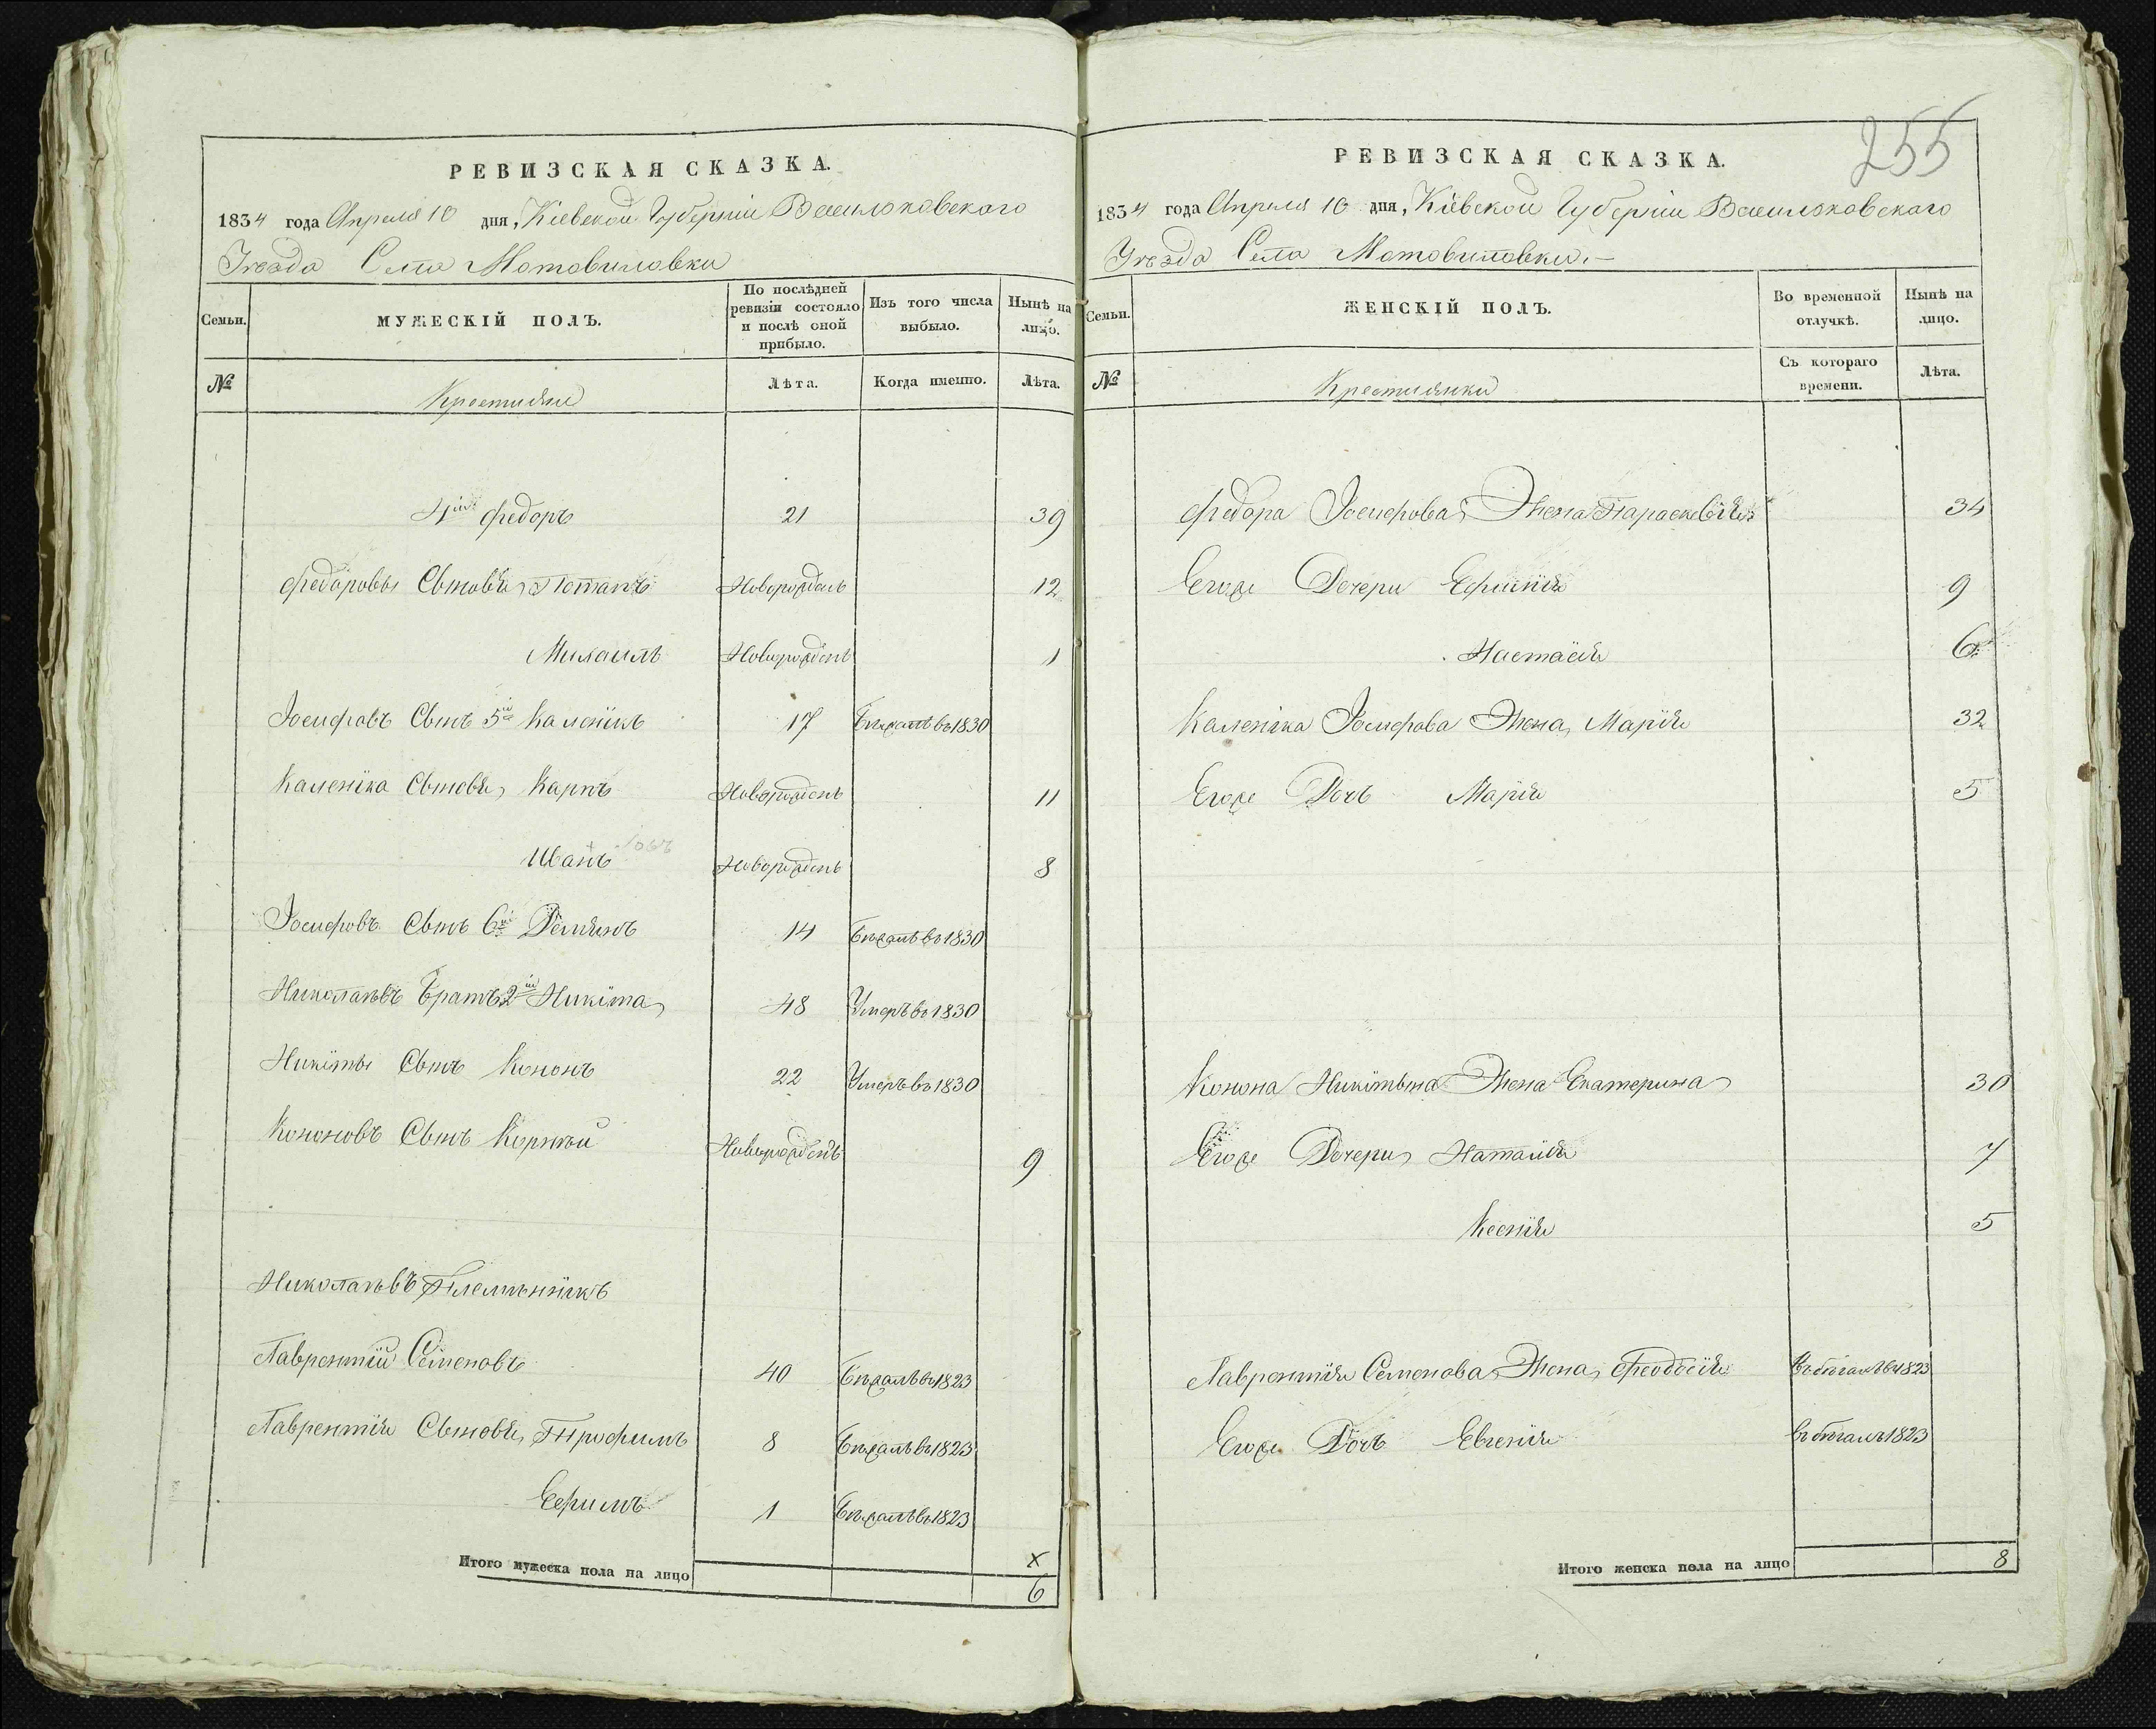 РЕВИЗСКАЯ СКАЗКА.
1834 года Апреля 10 дня, Кіевской Губерніи Васильковскаго
Уѣзда Села Мотовиловки
Семьи.
МУЖЕСКІЙ ПОЛЪ.
По послѣдней ревизіи состояло и послѣ оной прибыло.
Изъ того числа выбыло.
Нынѣ на лицо.
№
Крестьяне
Лѣта.
Когда именно.
Лѣта.
4й Федоръ 21 39
Федоровы Сыновья Потапъ Новорожденъ 12
Михаилъ Новорожденъ 1
Іосифовъ Сынъ 5й Каленікъ 17 Бѣжалъ въ 1830
Каленіка Сыновья Карпъ Новорожденъ 11
Иванъ Новорожденъ 8
Іосифовъ Сынъ 6й Демянъ 14 Бѣжалъ въ 1830
Николаевъ Братъ 2й Никіта 48 Умеръ въ 1830
Никіты Сынъ Кононъ 22 Умеръ въ 1830
Кононовъ Сынъ Корнѣй Новорожденъ 9
Николаевъ Племѣннікъ
Лаврентій Семеновъ 40 Бѣжалъ въ 1823
Лаврентія Сыновья Трофимъ 8 Бѣжалъ въ 1823
Ефимъ 1 Бѣжалъ въ 1823
Итого мужеска пола на лицо x 6
255
РЕВИЗСКАЯ СКАЗКА.
1834 года Апреля 10 дня, Кіевской Губерніи Васильковскаго
Уѣзда Села Мотовиловки.
Семьи.
ЖЕНСКІЙ ПОЛЪ.
Во временной отлучкѣ.
Нынѣ на лицо.
№
Крестьянки
Съ котораго времени.
Лѣта.
Федора Іосифова Жена Параскевія 34
Егоже Дочери Ефимія 9
Настасія 6
Каленіка Іосифова Жена Марія 32
Егоже Дочь Марія 5
Конона Никітына Жена Екатерина 30
Егоже Дочери Наталія 7
Ксенія 5
Лаврентія Семенова Жена Феодосія Въ бѣгахъ въ 1823
Егоже Дочь Евгенія въ бѣгахъ 1823
Итого женска пола на лицо 8